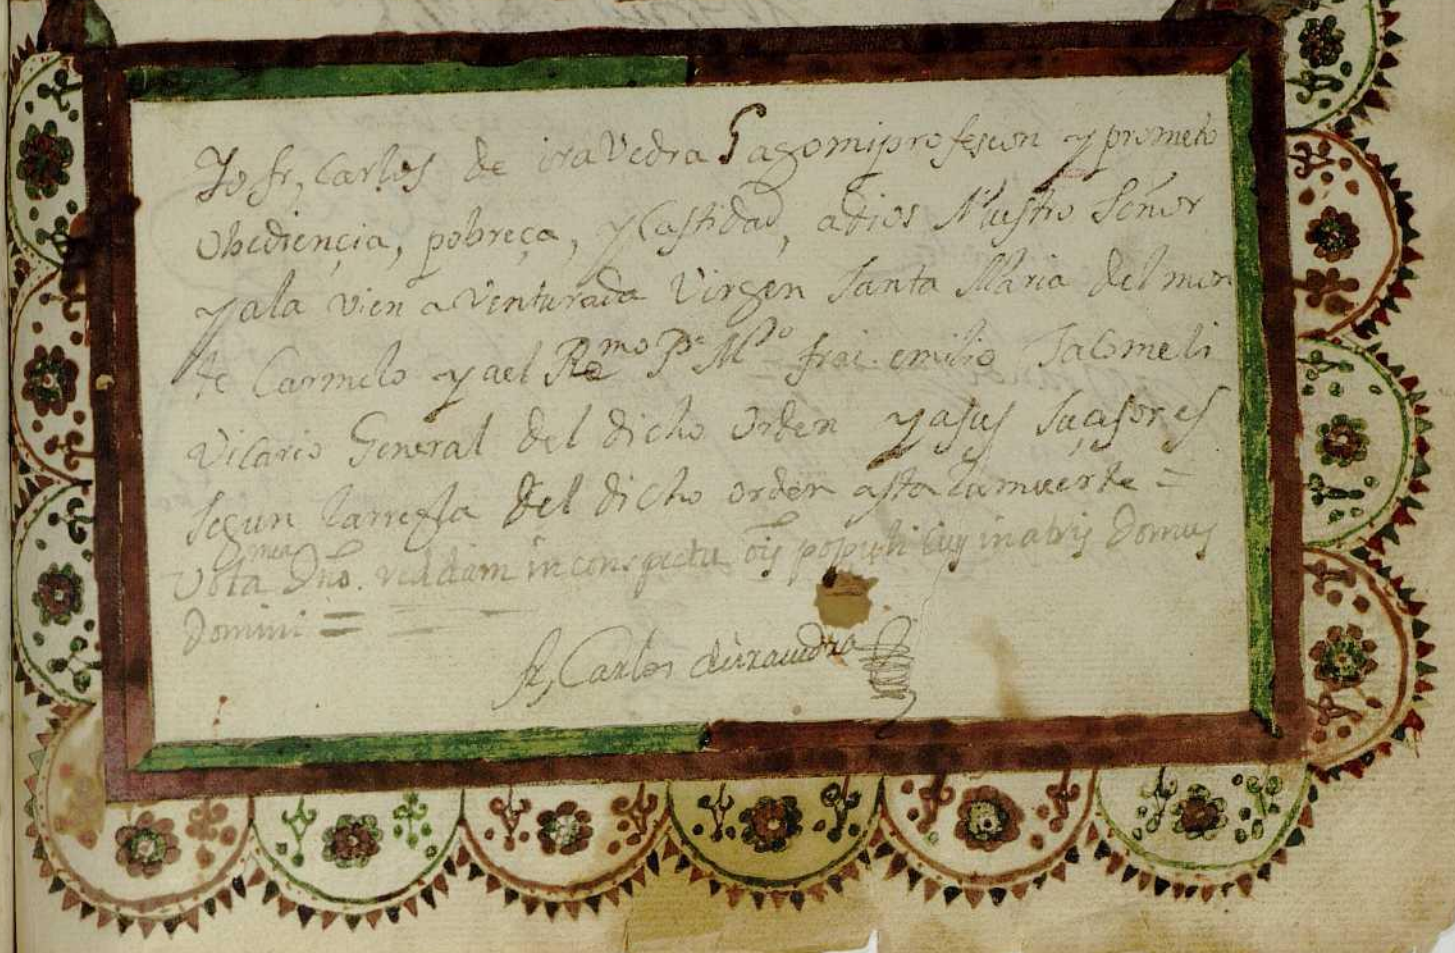 Yo fr, Carlos de iraVedra Gago mi profesion y prometo
Obediençia, pobreça, y Castidad, adios Nuestro Señor
y ala vien aventurada Virgen Santa Maria del mon
te Carmelo y ael Rmo Pe Mro frai emilio Jacomeli
Vicario General del dicho Orden y asus suçesores
segun larregla del dicho orden asta la muerte =
Vota mea Dno. reddam in conspectu ois populi eius in atris Domus
Domini =
fr, Carlos de iravedra